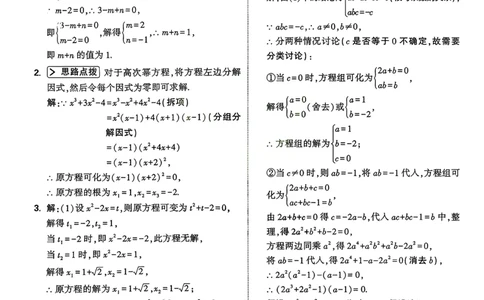 ∵ m-2=0,∴ 3-m+n=0,
即{3-m+n=0 m-2=0,解得{m=2 n=-1,∴ m+n=1,
即 m+n 的值为 1.
2. 思路点拨 对于高次幂方程,将方程左边分解
因式,然后令每个因式为零即可求解.
解:∵ x³+3x²-4=x³-x²+4x²-4(拆项)
=x²(x-1)+4(x+1)(x-1)(分组分
解因式)
=(x-1)(x²+4x+4)
=(x-1)(x+2)²,
∴ 原方程可化为(x-1)(x+2)²=0,
∴ 原方程的根为 x₁=1,x₂=x₃=-2.
3. 解:(1)设 x²-2x=t,则原方程可变为 t²+t-2=0,
解得 t₁=-2,t₂=1,
当 t₁=-2 时,即 x²-2x=-2,此方程无解,
当 t₂=1 时,即 x²-2x=1,
解得 x₁=1+√2,x₂=1-√2,
∴ 原方程的解为 x₁=1+√2,x₂=1-√2;
abc=-c
∵ abc=-c,∴ a≠0,b≠0,
∴ 分两种情况讨论(c 是否等于 0 不确定,故需要
分类讨论):
①当 c=0 时,方程组可化为{2a+b=0 ab=b,
解得{a=0 b=0(舍去)或{a=1 b=-2,
∴ 方程组的解为{a=1 b=-2; c=0
②当 c≠0 时,则 ab=-1,将 ab=-1 代人,方程组可
化为{2a+b+c=0 ac+bc-1=b,
由 2a+b+c=0 得 c=-2a-b,代人 ac+bc-1=b 中,整
理,得 2a²+b²+b-2=0,
方程两边同乘 a²,得 2a⁴+a²b²+a²b-2a²=0,
将 ab=-1 代人,得 2a⁴+1-a-2a²=0(消去 b),
∴ 2a²(a²-1)-(a-1)=0,
∴ (2a³+2a²-1)(a-1)=0.